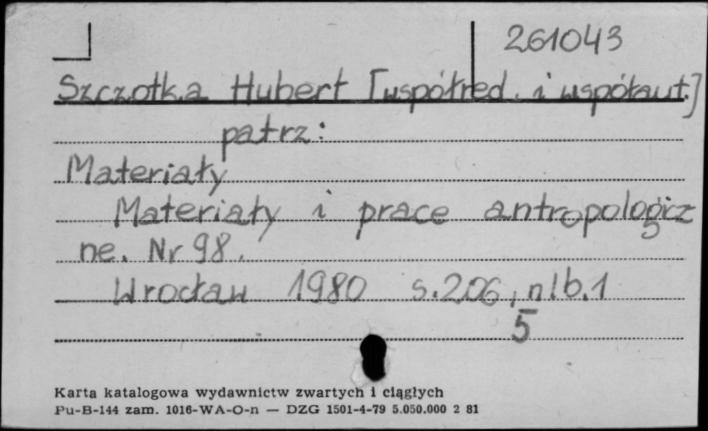 261043
Szczotka Hubert [współred. i współaut.]
patrz:
Materiały
Materiały i prace antropologicz
ne. Nr 98.
Wrocław 1980 s.206, nlb.1
5
Karta katalogowa wydawnictw zwartych i ciągłych
Pu-B-144 zam. 1016-WA-O-n — DZG 1501-4-79 5.050.000 2 81